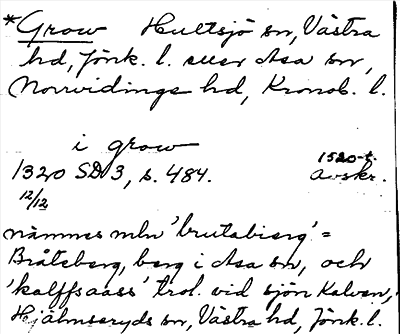 *Grow Hultsjö sn, Västra
hd, Jönk. l. eller Asa sn,
Norrvidinge hd, Kronob. l.
i grow
1320 SD 3, s. 484. 1520-t.
avskr.
12/12
nämnes mln 'brutabierg' =
Bråteberg, berg i Asa sn, och
'kalffsaass' trol. vid sjön Kalven,
Hjälmseryds sn, Västra hd, Jönk. l.